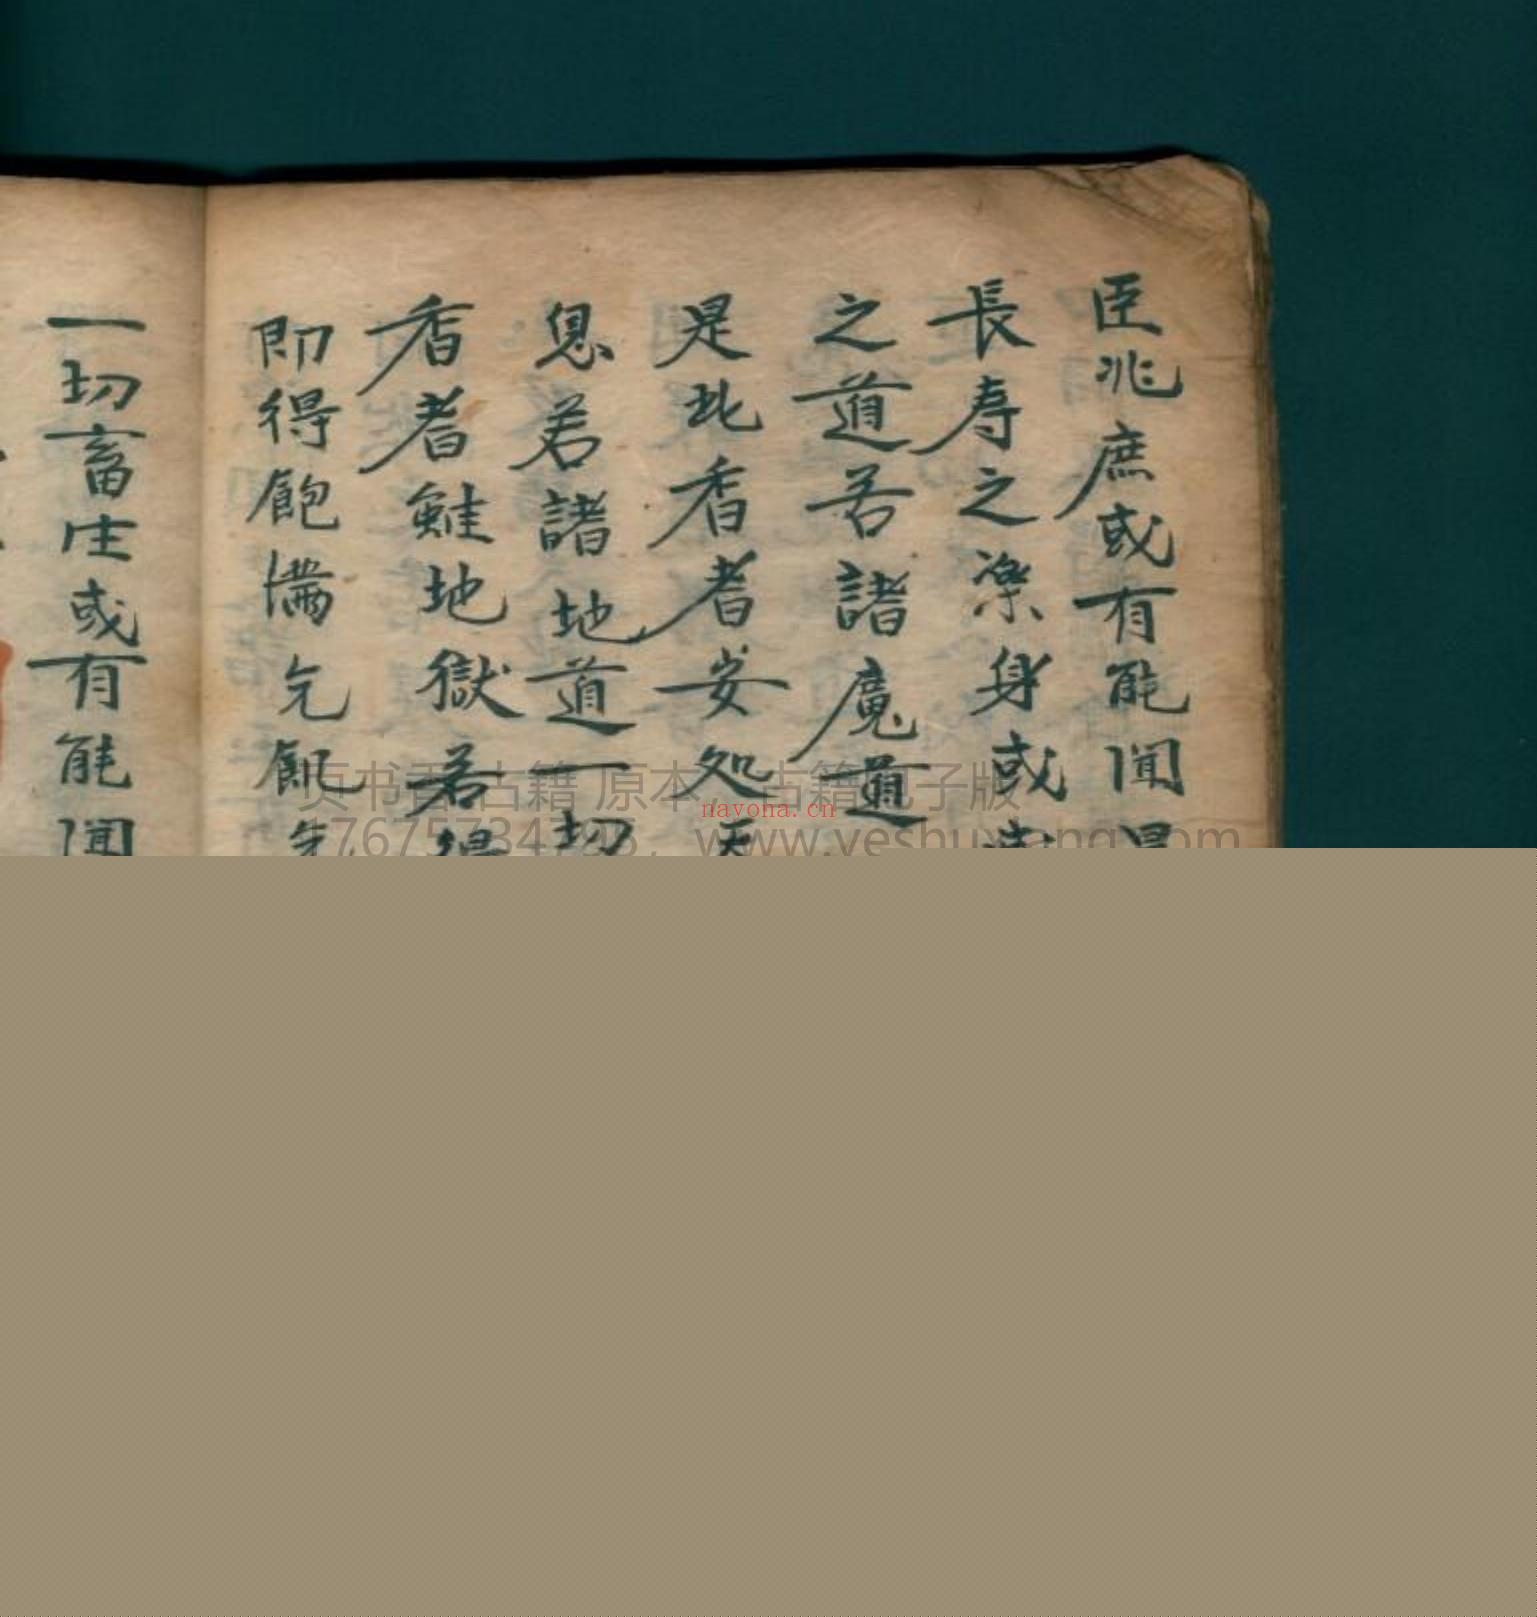 臣兆庶或有能聞是
長寿之楽身或
之道若諸魔道
是比香者安処天
息若諸地道一切
香者鮭地獄若得
即得飽満乞飢乞
一切畜生或有能聞
页书香古籍 原本，古籍电子版
nayona.cn
www.yeshuxiang.com